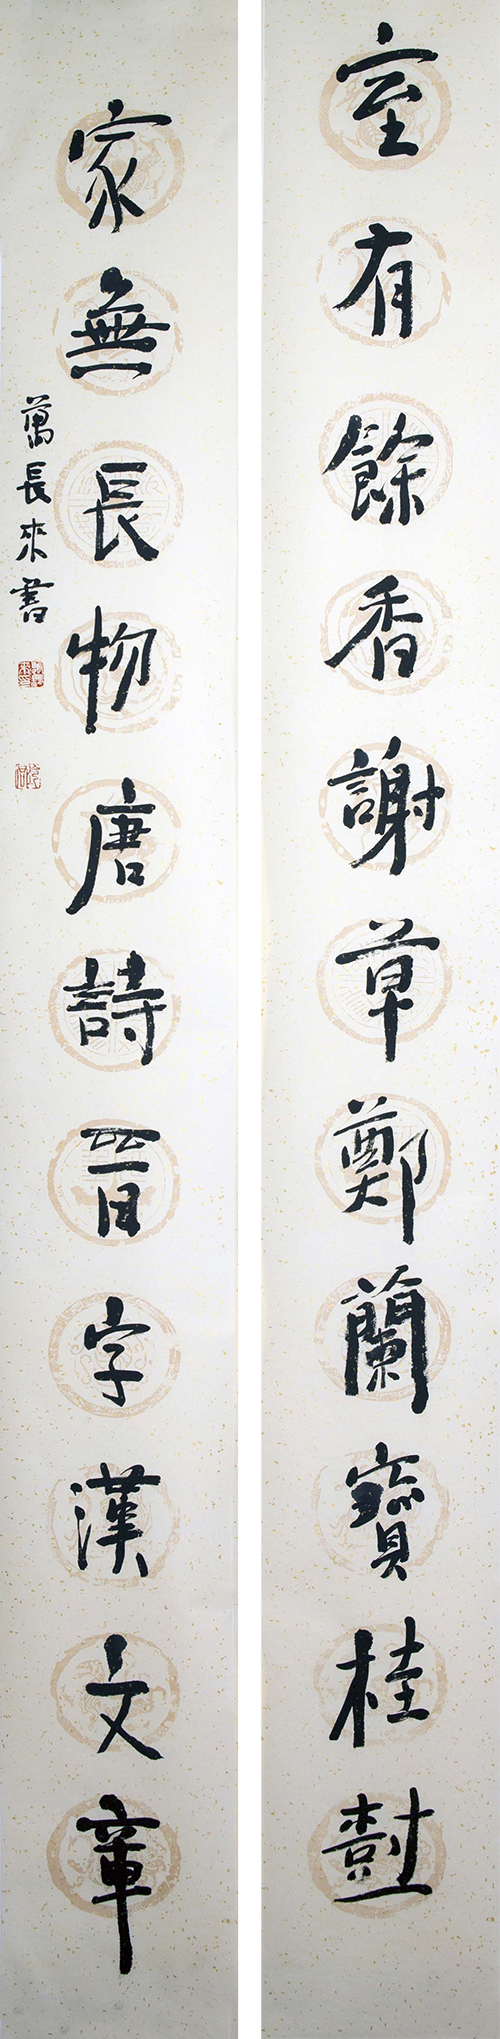 室有餘香謝草鄭蘭寶桂樹
家無長物唐詩晉字漢文章
萬長來書